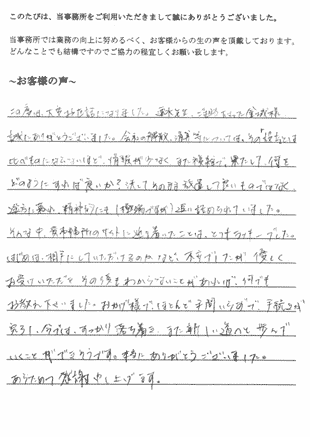 このたびは、当事務所をご利用いただきまして誠にありがとうございました。
当事務所では業務の向上に努めるべく、お客様からの生の声を頂戴しております。
どんなことでも結構ですのでご協力の程宜しくお願い致します。
~お客様の声~
この度は、大変お世話になりました。
誠にありがとうございました。会社の解散、清算については、その
比べものにならないほど、情報が少なく、また複雑で、果たして、何を
どのようにすれば良いか?決してそのまま放置して良いものではなく、
途方に暮れ、精神的にも(極端ですが)追い詰められていました。
そんな中、貴事務所のサイトに辿り着いたことは、とてもラッキーでした。
はじめは、相手にしていただけるのかなど、不安でしたが、優しく
お受けいただき、その後もわからないことがあれば、何でも
お教え下さいました。おかげ様で、ほとんど手間いらずで、手続きが
完了し、今では、すっかり落ち着き、また新しい道へと歩んで
いくことができそうです。本当にありがとうございました。
あらためて感謝申し上げます。